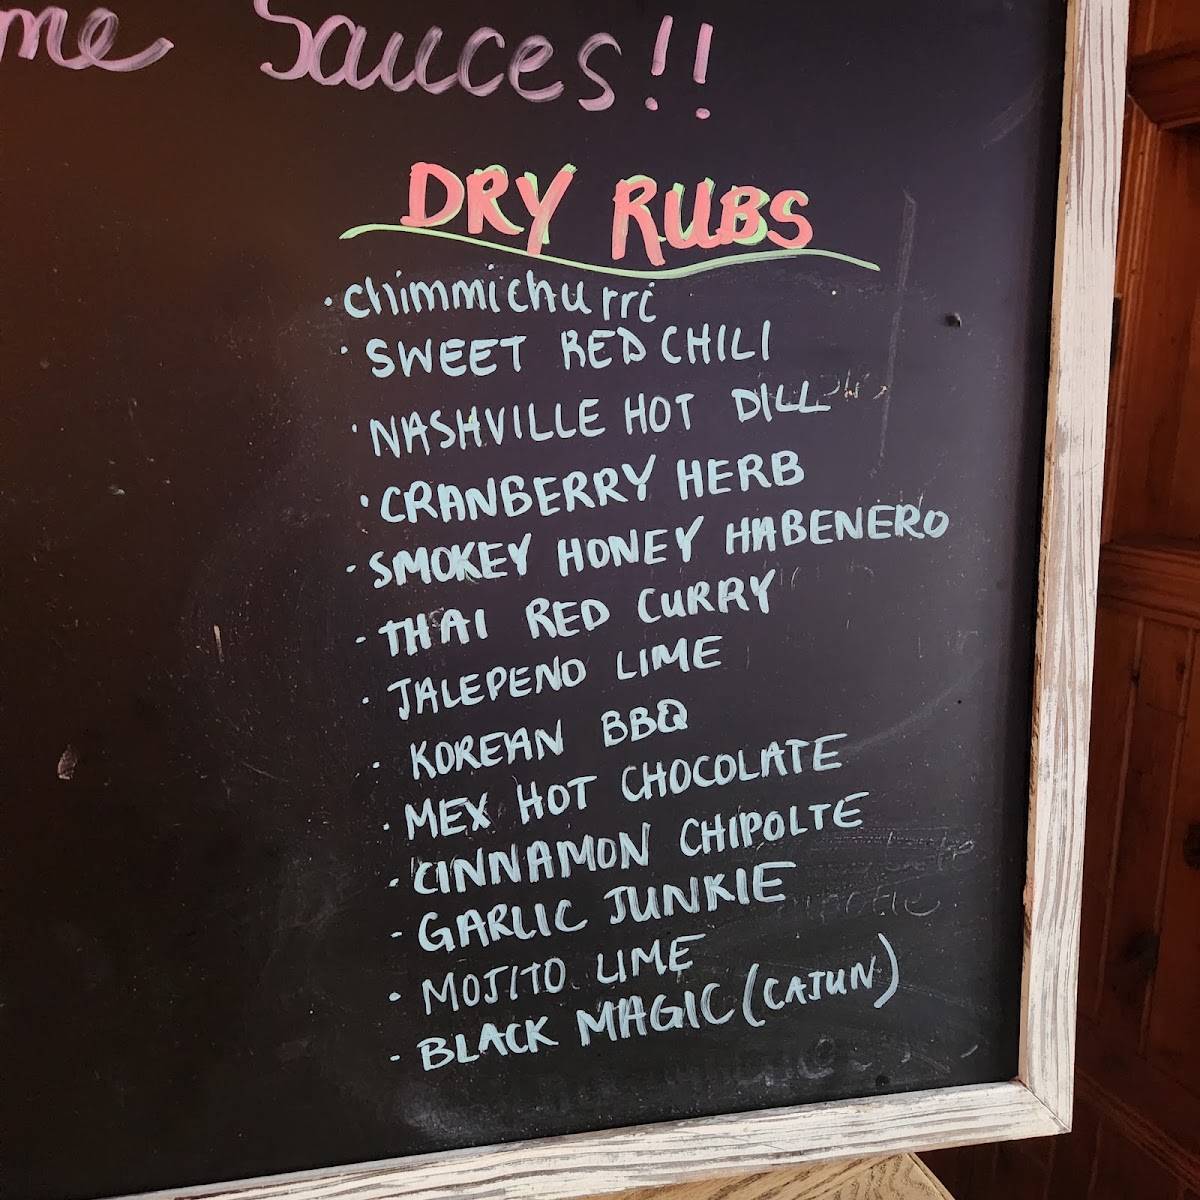 me Sauces!!
DRY RUBS
· chimmichurri
· SWEET RED CHILI
· NASHVILLE HOT DILL
· CRANBERRY HERB
· SMOKEY HONEY HABENERO
· THAI RED CURRY
· JALEPENO LIME
· KOREAN BBQ
· MEX HOT CHOCOLATE
· CINNAMON CHIPOLTE
- GARLIC JUNKIE
· MOJITO LIME
· BLACK MAGIC (CAJUN)